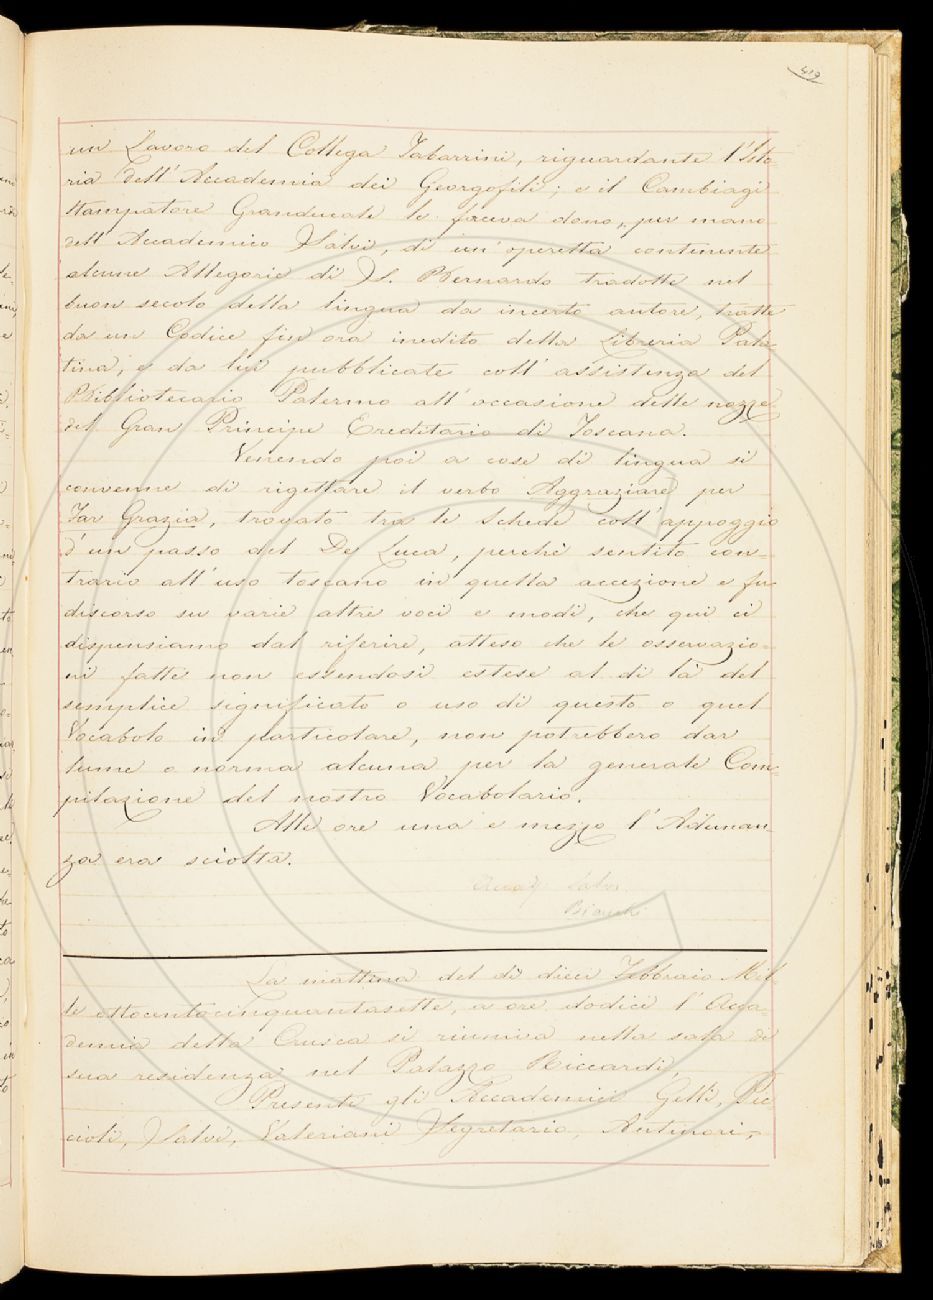 419
un Lavoro del Collega Tabarrini, riguardante l'Isto
ria dell'Accademia dei Georgofili; e il Cambiagi
Stampatore Granducale le faceva dono, per mano
dell'Accademico Salvi, di un'operetta contenente
alcune Allegorie di S. Bernardo tradotte nel
buon secolo della lingua da incerto autore, tratte
da un Codice fin ora inedito della Libreria Pala
tina, e da lui pubblicate coll'assistenza del
Bibliotecario Palermo all'occasione delle nozze
del Gran Principe Ereditario di Toscana.
Venendo poi a cose di lingua si
convenne di rigettare il verbo Aggraziare per
Far Grazia, trovato tra le Schede coll'appoggio
d'un passo del De Luca, perchè sentito con-
trario all'uso toscano in quella accezione e fu
discorso su varie altre voci e modi, che qui ci
dispensiamo dal riferire, atteso che le osservazio-
ni fatte non essendosi estese al di là del
semplice significato o uso di questo o quel
Vocabolo in particolare, non potrebbero dar
lume o norma alcuna per la generale Com-
pilazione del nostro Vocabolario.
Alle ore una e mezzo l'Adunan
za era sciolta.
Bianchi
La mattina del dì dieci Febbraio Mil-
le ottocentocinquantasette, a ore dodici l'Acca-
demia della Crusca si riuniva nella sala di
sua residenza nel Palazzo Riccardi,
Presenti gli Accademici Gelli, Puc
cioli, Salvi, Valeriani Segretario, Antinori,